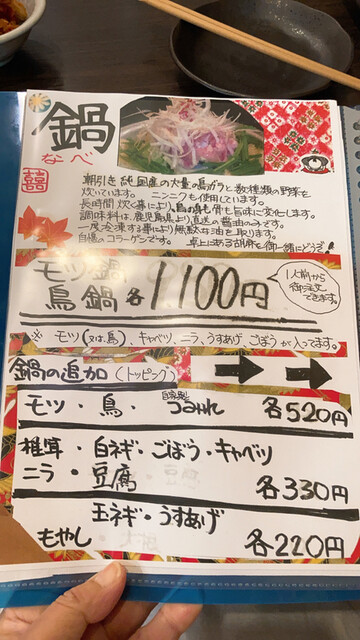 鍋
なべ
朝引き純国産の大量の鳥ガラと数種類の野菜を
炊いています。ニンニクも使用しています。
長時間炊く事により、鳥の身も骨も旨味に変化します。
調味料は、鹿児島より直送の醤油のみです。
一度冷凍する事により無駄な油を取ります。
自慢のコラーゲンです。 卓上にある胡麻を御一緒にどうぞ
モツ鍋
鳥鍋 各1100円
1人前から
御注文
できます。
※ モツ(又は、鳥)、キャベツ、ニラ、うすあげ、ごぼうが入ってます。
鍋の追加(トッピング)
モツ・鳥・自家製つみれ 各520円
椎茸・白ネギ・ごぼう・キャベツ
ニラ・豆腐 各330円
玉ネギ・うすあげ
もやし 各220円